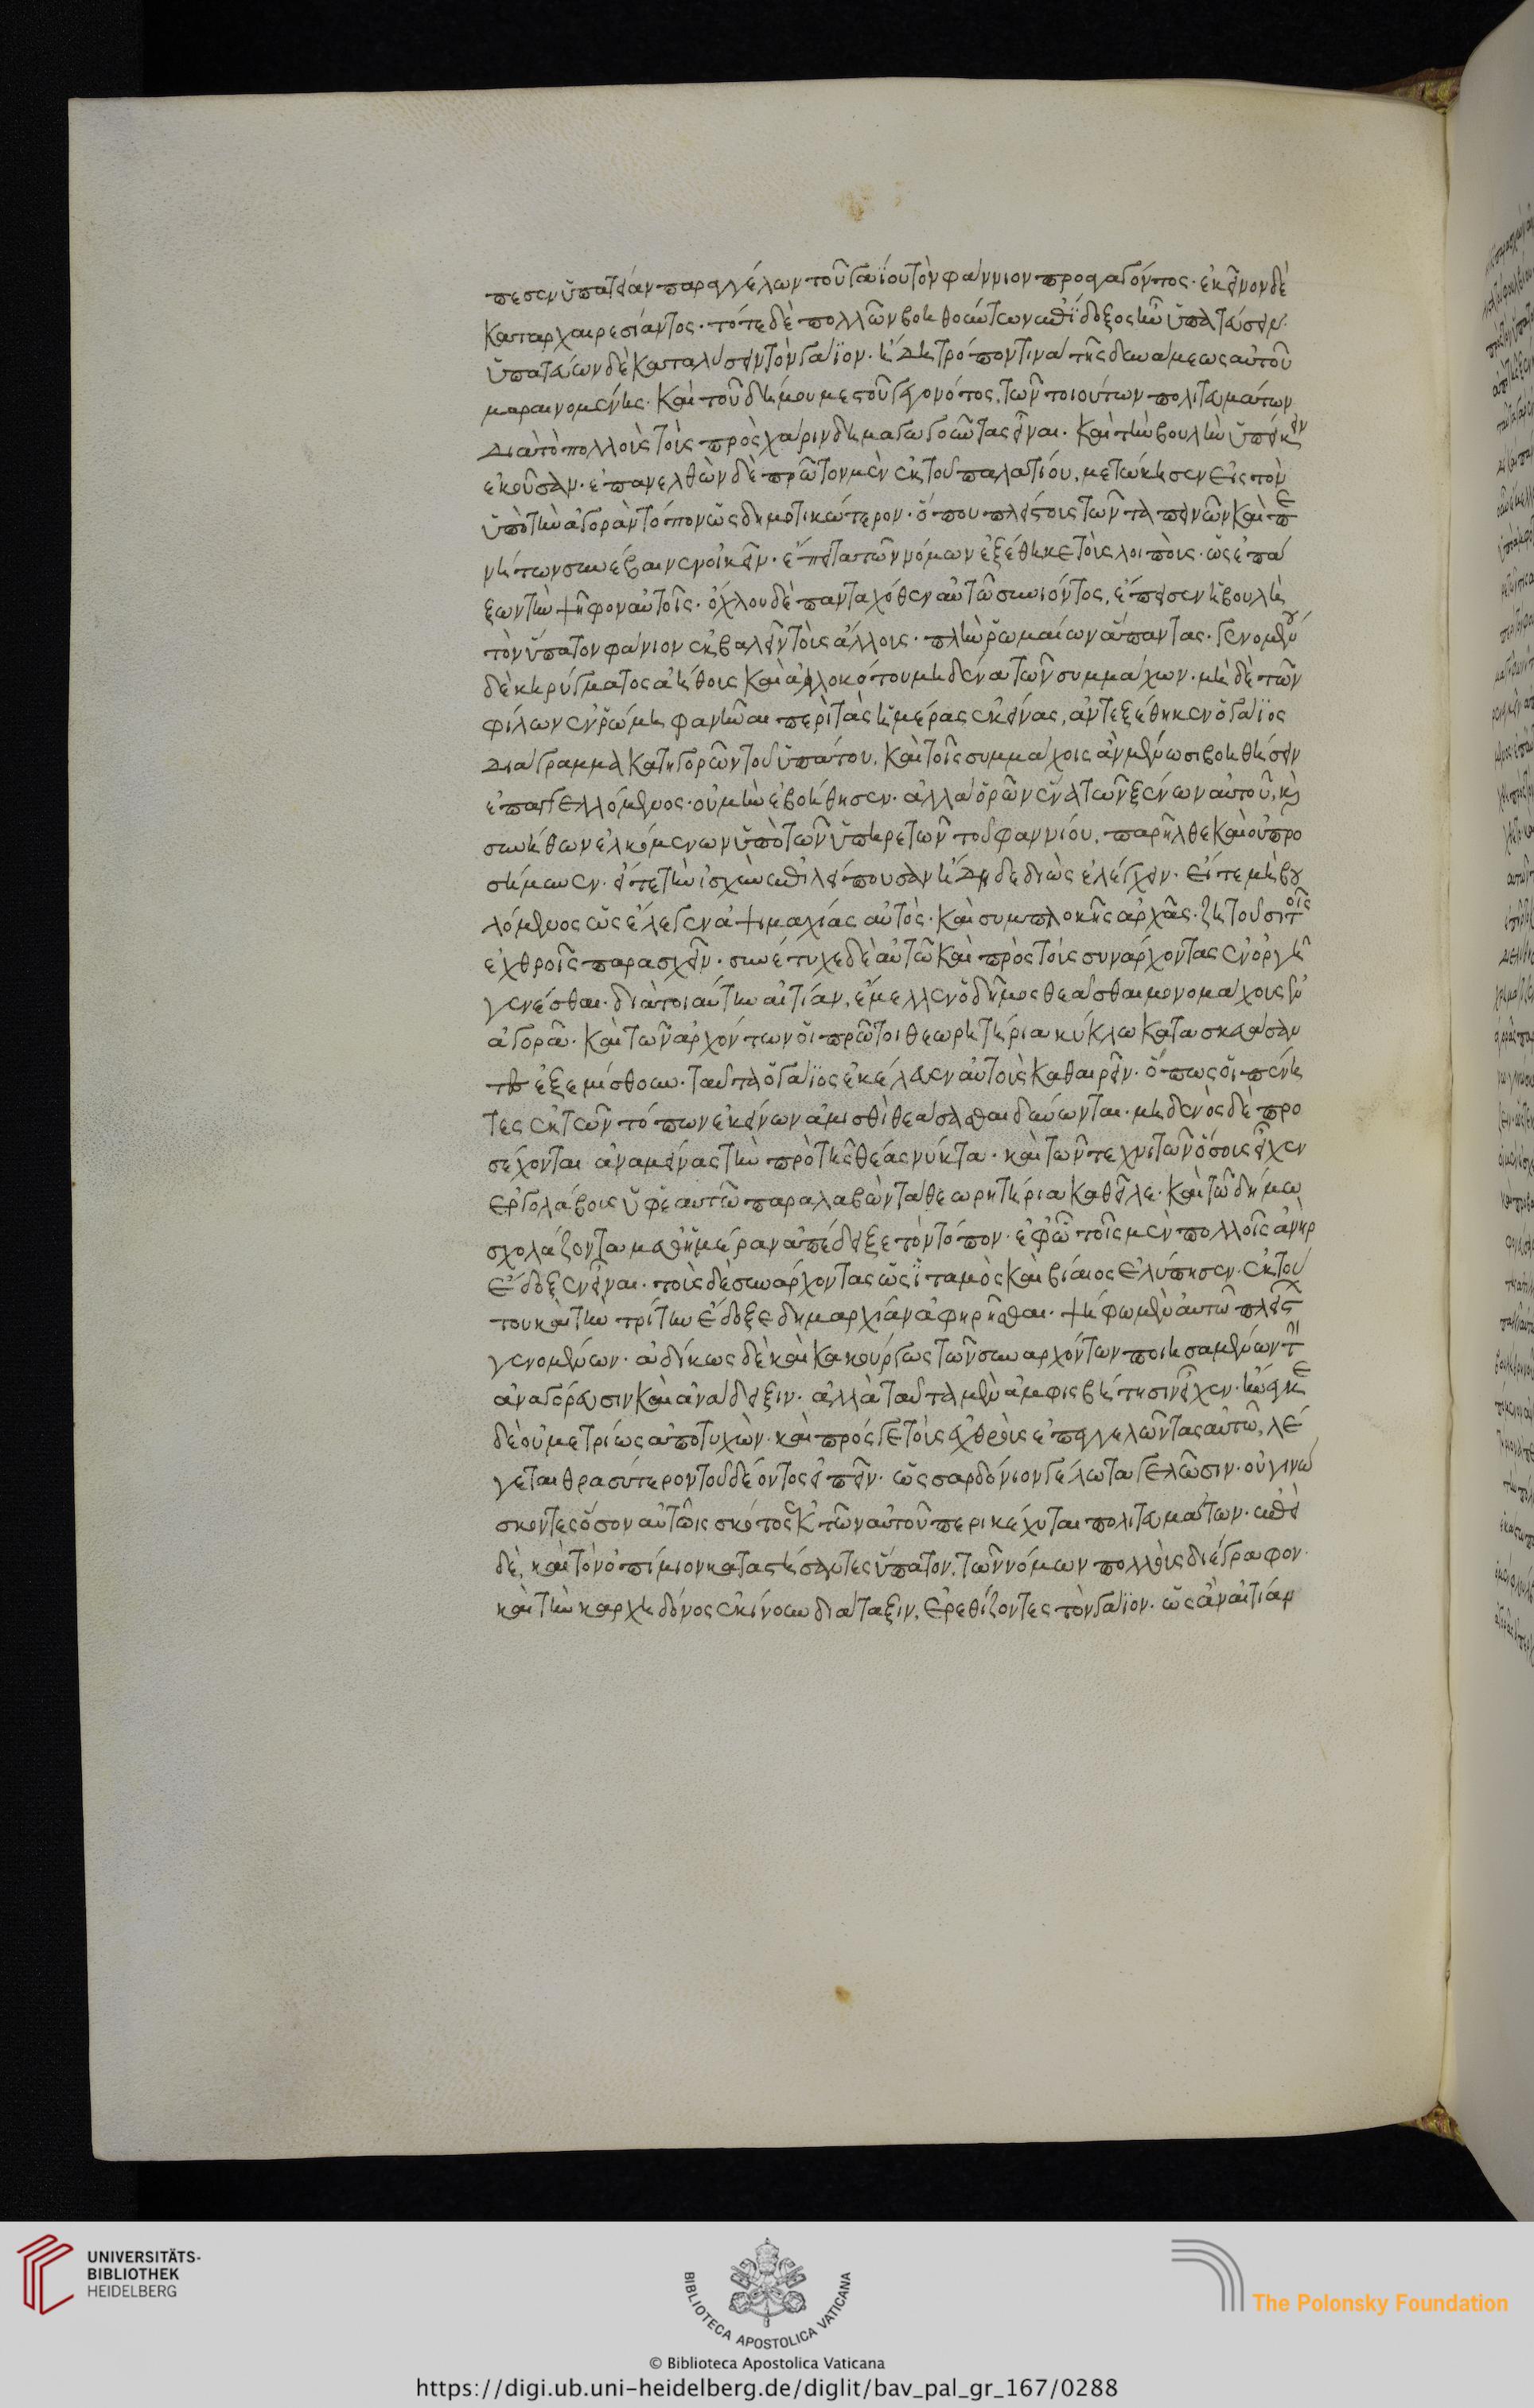 πεσεν ὑπατείαν παραγγέλων τοῦ γαΐου τὸν φάννιον προαγαγόντος· ἐκεῖνον δὲ
καταρχαιρεσιάντος· τότε δὲ πολλῶν βοηθούντων ἐπίδοξος ἦν ὑπατεύσειν·
ὑπατεύων δὲ καταλύσειν τὸν γαΐον· ἤδη τρόπον τινὰ τῆς δυνάμεως αὐτοῦ
μαραινομένης· καὶ τοῦ δήμου μεστοῦ γεγονότος, τῶν τοιούτων πολιτευμάτων
διὰ τὸ πολλοὺς τοὺς πρὸς χάριν δημαγωγοῦντας εἶναι· καὶ τὴν βουλὴν ὑπείκειν
ἑκοῦσαν· ἐπανελθὼν δὲ πρῶτον μὲν ἐκ τοῦ παλατίου, μετώκησεν εἰς τὸν
ὑπὸ τὴν ἀγορὰν τόπον ὡς δημοτικώτερον· ὅπου πλείστους τῶν ταπεινῶν καὶ πε
νήτων συνέβαινεν οἰκεῖν· ἔπειτα τῶν νόμων ἐξέθηκε τοὺς λοιποὺς· ὡς ἐπά
ξων τὴν ψῆφον αὐτοῖς· ὄχλου δὲ πανταχόθεν αὐτῶ συνιόντος, ἔπεισεν ἡ βουλὴ
τὸν ὕπατον φάνιον ἐκβαλεῖν τοὺς ἄλλους· πλὴν ῥωμαίων ἅπαντας· γενομένου
δὲ κηρύγματος ἀήθους καὶ ἀλλοκότου μηδένα τῶν συμμάχων· μὴ δὲ τῶν
φίλων ἐν ῥώμη φανῆναι περὶ τὰς ἡμέρας ἐκείνας, ἀντεξέθηκεν ὁ γαΐος
διάγραμμα κατηγορῶν τοῦ ὑπάτου, καὶ τοῖς συμμάχοις ἂν μένωσι βοηθήσειν
ἐπαγγελλόμενος· οὐ μὴν ἐβοήθησεν· ἀλλὰ ὁρῶν ἕνα τῶν ξένων αὐτοῦ, καὶ
συνήθων ἑλκόμενων ὑπὸ τῶν ὑπηρετῶν τοῦ φαννίου, παρῆλθε καὶ οὐ προ
σήμυνεν· εἴτε τὴν ἰσχὺν ἐπιλείπουσαν ἤδη δεδιὼς ἐλέγχειν· εἴτε μὴ βου
λόμενος ὡς ἔλεγεν ἁψιμαχίας αὐτὸς· καὶ συμπλοκῆς ἀρχὰς· ζητοῦσι τοῖς
ἐχθροῖς παρασχεῖν· συνέτυχε δὲ αὐτῶ καὶ πρὸς τοὺς συνάρχοντας ἐν ὀργῆ
γενέσθαι· διὰ τοιαύτην αἰτίαν, ἔμελλεν ὁ δῆμος θεᾶσθαι μονομάχους ἐν
ἀγορᾶ· καὶ τῶν ἀρχόντων οἱ πρῶτοι θεωρητήρια κύκλω κατασκευάσαν
τες ἐξεμίσθουν· ταῦτα ὁ γαΐος ἐκέλευεν αὐτοὺς καθαιρεῖν· ὅπως οἱ πένη
τες ἐκ τῶν τόπων ἐκείνων ἀμισθὶ θεάσασθαι δύνωνται· μηδενὸς δὲ προ
σέχοντος ἀναμείνας τὴν πρὸ τῆς θέας νύκτα· καὶ τῶν τεχνιτῶν ὅσους εἶχεν
ἐργολάβους ὑφ' ἑαυτῶ παραλαβὼν τὰ θεωρητήρια καθεῖλε· καὶ τῶ δήμω
σχολάζοντα μεθ' ἡμέραν ἀπέδειξε τὸν τόπον· ἐφ' ὧ τοῖς μὲν πολλοῖς ἀνὴρ
ἔδοξεν εἶναι· τοὺς δὲ συνάρχοντας ὡς ἰταμὸς καὶ βίαιος ἐλύπησεν· ἐκ τού
του καὶ τὴν τρίτην ἔδοξε δημαρχίαν ἀφηρῆσθαι· ψήφων μὲν αὐτῶ πλείστων
γενομένων· ἀδίκως δὲ καὶ κακούργως τῶν συναρχόντων ποιησαμένων τὴν
ἀναγόρευσιν καὶ ἀνάδειξιν· ἀλλὰ ταῦτα μὲν ἀμφισβήτησιν εἶχεν· ἤνεγκε
δὲ οὐ μετρίως ἀποτυχὼν· καὶ πρός γε τοὺς ἐχθροὺς ἐπεγγελῶντας αὐτῶ, λέ
γεται θρασύτερον τοῦ δέοντος εἰπεῖν· ὡς σαρδόνιον γέλωτα γελῶσιν· οὐ γινώ
σκοντες ὅσον αὐτοῖς σκότος ἐκ τῶν αὐτοῦ περικέχυται πολιτευμάτων· ἐπεὶ
δὲ, καὶ τὸν ὀπίμιον καταστήσαντες ὕπατον, τῶν νόμων πολλοὺς διέγραφον·
καὶ τὴν καρχηδόνος ἐκίνουν διάταξιν, ἐρεθίζοντες τὸν γαΐον· ὡς ἂν αἰτίαν
UNIVERSITÄTS-
BIBLIOTHEK
HEIDELBERG
BIBLIOTECA APOSTOLICA VATICANA
The Polonsky Foundation
© Biblioteca Apostolica Vaticana
https://digi.ub.uni-heidelberg.de/diglit/bav_pal_gr_167/0288